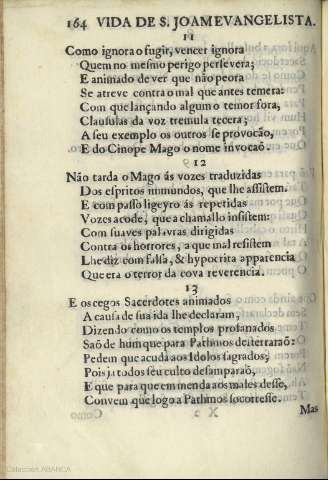 164 VIDA DE S. JOAM EVANGELISTA.
11
Como ignora o fugir, vencer ignora
Quem no mesmo perigo persevera;
E animado de ver que não peora
Se atreve contra o mal que antes temera:
Com que lançando algum o temor fora,
Clausulas da voz tremula tecera;
A seu exemplo os outros se provocão,
E do Cinope Mago o nome invocaõ.
12
Não tarda o Mago ás vozes traduzidas
Dos espritos immundos, que lhe assistem.
E com passo ligeyro ás repetidas
Vozes acode, que a chamallo insistem:
Com suaves palavras dirigidas
Contra os horrores, a que mal resistem
Lhe diz com falsa, & hypocrita apparencia
Que era o terror da cova reverencia.
13
E os cegos Sacerdotes animados
A causa de sua ida lhe declaram,
Dizendo como os templos profanados
Saõ de hum que para Pathmos desterraraõ:
Pedem que acuda aos Idolos sagrados;
Pois ja todos seu culto desamparaõ,
E que para que emmenda aos males desse,
Convem que logo a Pathmos socorresse.
Mas
Colección ABANCA